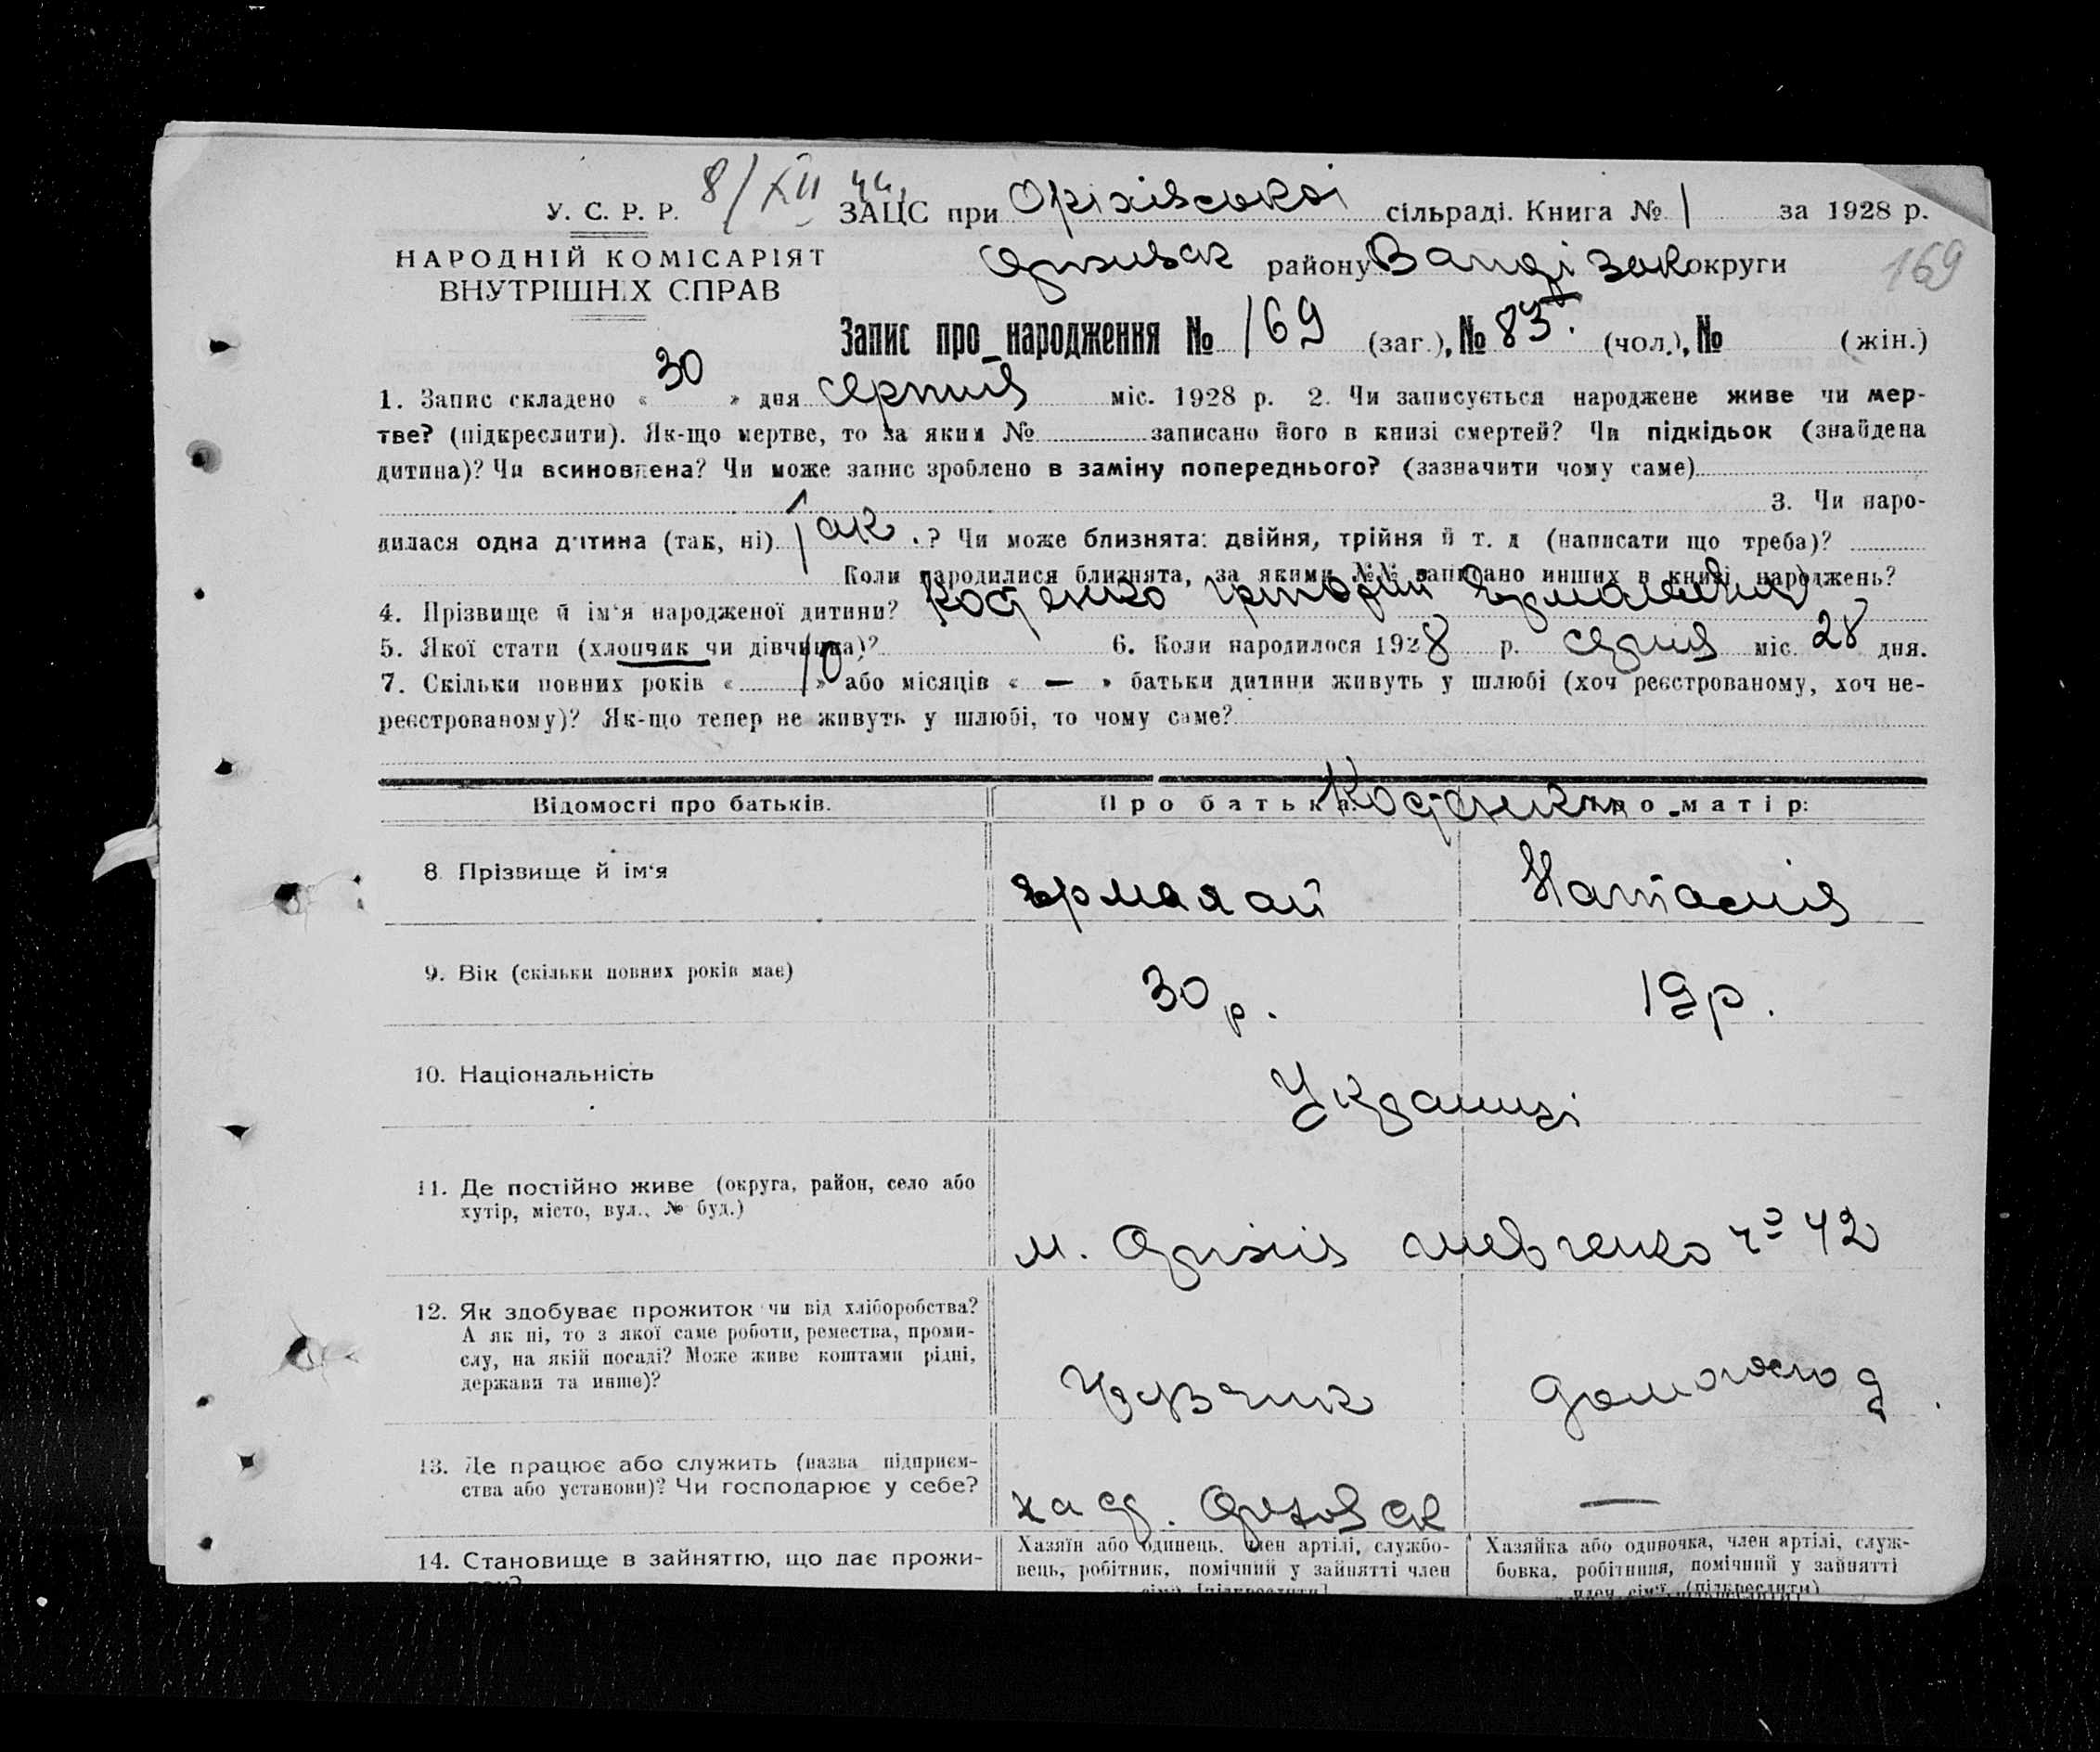 У. С. Р. Р. 8/XII ЗАЦС при Оріхівської сільраді. Книга № 1 за 1928 р.
НАРОДНІЙ КОМІСАРІЯТ району округи 169
ВНУТРІШНІХ СПРАВ
Запис про народження № 169 (заг.), № 83. (чол.), № (жін.)
1. Запис складено « 30 » дня серпня міс. 1928 р. 2. Чи записується народжене живе чи мер-
тве? (підкреслити). Як-що мертве, то за яким № записано його в книзі смертей? Чи підкідьок (знайдена
дитина)? Чи всиновлена? Чи може запис зроблено в заміну попереднього? (зазначити чому саме)
3. Чи наро-
дилася одна дитина (так, ні) так.? Чи може близнята: двійня, трійня й т. д (написати що треба)?
Коли народилися близнята, за якими №№ записано инших в книзі народжень?
4. Прізвище й ім'я народженої дитини?
5. Якої стати (хлопчик чи дівчинка)? 6. Коли народилося 1928 р. серпня міс. 28 дня.
7. Скільки повних років « 10 » або місяців « — » батьки дитини живуть у шлюбі (хоч реєстрованому, хоч не-
реєстрованому)? Як-що тепер не живуть у шлюбі, то чому саме?
Відомості про батьків. Про батька: Про матір:
8 Прізвище й ім'я Натаlія
9. Вік (скільки повних років має) 30 р. 19 р.
10. Національність Українці
11. Де постійно живе (округа, район, село або
хутір, місто, вул., № буд.)
м. Оріхів Шевченко № 42
12. Як здобуває прожиток чи від хліборобства?
А як ні, то з якої саме роботи, ремества, проми-
слу, на якій посаді? Може живе коштами рідні,
держави та инше)?
домогоспод.
13. Де працює або служить (назва підприєм-
ства або установи)? Чи господарює у себе? —
14. Становище в зайняттю, що дає прожи-
Хазяїн або одинець, член артілі, службо-
вець, робітник, помічний у зайнятті член
сім'ї [підкреслити]
Хазяйка або одиночка, член артілі, служ-
бовка, робітниця, помічний у зайнятті
член сім'ї (підкреслити)